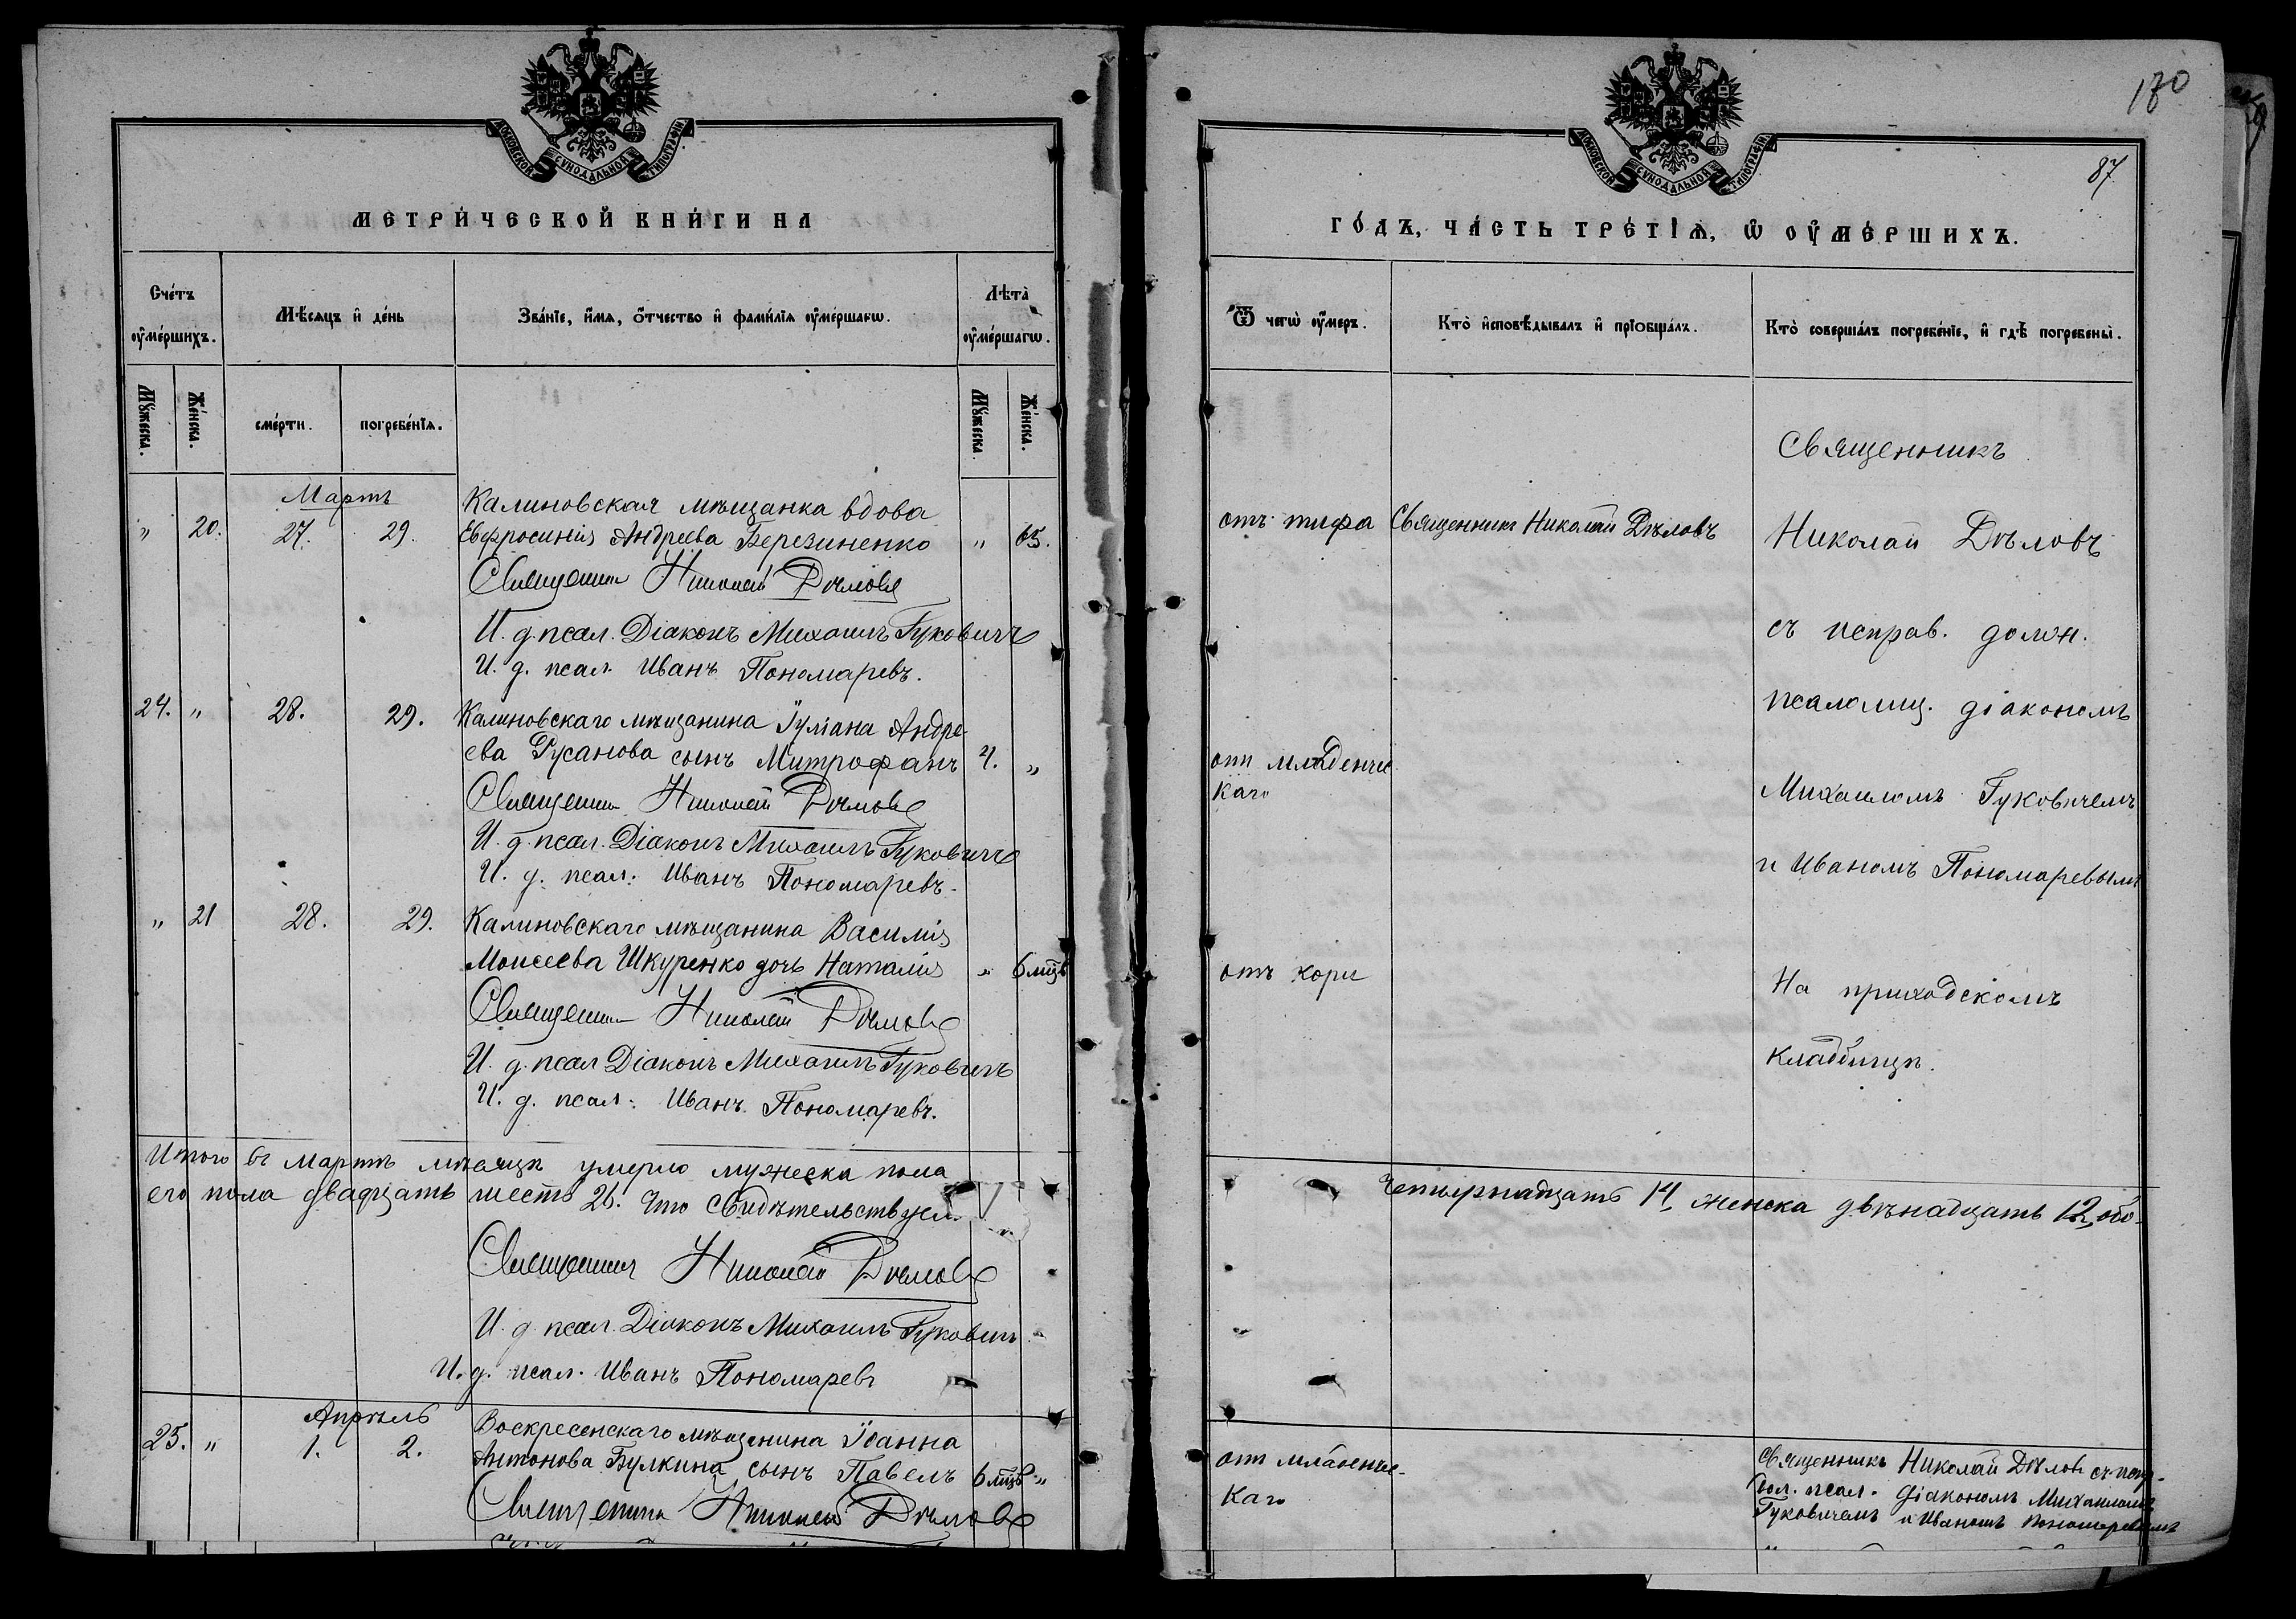 МОСКОВСКОЙ СѴНОДАЛЬНОЙ ТИПОГРАФІИ
МЕТРИ́ЧЕСКОЙ КНИ́ГИ НА
Сче́тъ ᲂу҆ме́ршихъ.
Мѣ́сяцъ и҆ де́нь
Зва́нїе, и҆́мѧ, ѻ҆́тчество и҆ фами́лїѧ ᲂу҆ме́ршагѡ.
Лѣта̀ ᲂу҆ме́ршагѡ.
Мꙋ́жеска.
Же́нска.
сме́рти.
погребе́нїѧ.
Мꙋ́жеска.
Же́нска.
Мартъ
" 20. 27. 29. Калиновская мѣщанка вдова
Евфросинія Андреева Березиненко " 65.
Священникъ Николай Дѣловъ
И. д. псал. Діаконъ Михаилъ Гуковичъ
И. д. псал. Иванъ Пономаревъ.
24. " 28. 29. Калиновскаго мѣщанина Іуліана Андре-
ева Русанова сынъ Митрофанъ 4. "
Священникъ Николай Дѣловъ
И. д. псал. Діаконъ Михаилъ Гуковичъ
И. д. псал: Иванъ Пономаревъ.
" 21 28. 29. Калиновскаго мѣщанина Василія
Моисеева Шкуренко дочь Наталія " 6 мцв
Священникъ Николай Дѣловъ
И. д. псал Діаконъ Михаилъ Гуковичъ
И. д. псал: Иванъ Пономаревъ.
Итого въ Мартѣ мѣсяцѣ умерло мужеска пола
его пола двадцать шесть 26. Что свидѣтельствуем
Священникъ Николай Дѣловъ
И. д. псал. Діаконъ Михаилъ Гуковичъ
И. д. псал. Иванъ Пономаревъ
Апрѣль
25. " 1. 2. Воскресенскаго мѣщанина Іоанна
Антонова Булкина сынъ Павелъ 6 мцв "
Священникъ Николай Дѣловъ
180
87
МОСКОВСКОЙ СѴНОДАЛЬНОЙ ТИПОГРАФІИ
ГО́ДЪ, ЧА́СТЬ ТРЕ́ТЇѦ, Ѡ҆ ОУ҆МЕ́РШИХЪ.
Ѿ чегѡ̀ ᲂу҆́меръ.
Кто̀ и҆сповѣ́дывалъ и҆ прїѻбща́лъ.
Кто̀ соверша́лъ погребе́нїе, и҆ гдѣ̀ погребены̀.
отъ тифа Священникъ Николай Дѣловъ
Священникъ
Николай Дѣловъ
съ исправ. долж.
псаломщ. діакономъ
Михаиломъ Гуковичемъ
и Иваномъ Пономаревымъ
На приходскомъ
кладбищѣ.
отъ младенчес-
каго
отъ кори
Четырнадцать 14, женска двѣнадцать 12, обо-
отъ младенчес-
каго
Священникъ Николай Дѣловъ съ испр.
дол. псал. діакономъ Михаиломъ
Гуковичемъ и Иваномъ Пономаревымъ